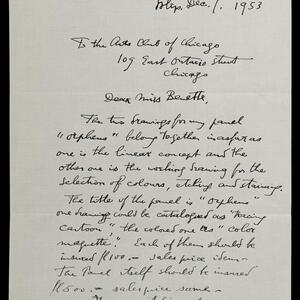 Dec. 1. 1953
To the Arts Club of Chicago
109 East Ontario Street
Chicago
Dear Miss Benette,
The two drawings for my panel
"Orpheus" belong together in as far as
one is the linear concept and the
other one is the working drawing for the
selection of colours, etching and staining.
The title of the panel is "Orpheus"
one drawing could be catalogued as
cartoon", the colored one as "color
maquette." Each of them should be
insured $100.— sales price idem—
The Panel itself should be insured
$1500.— sales price same—